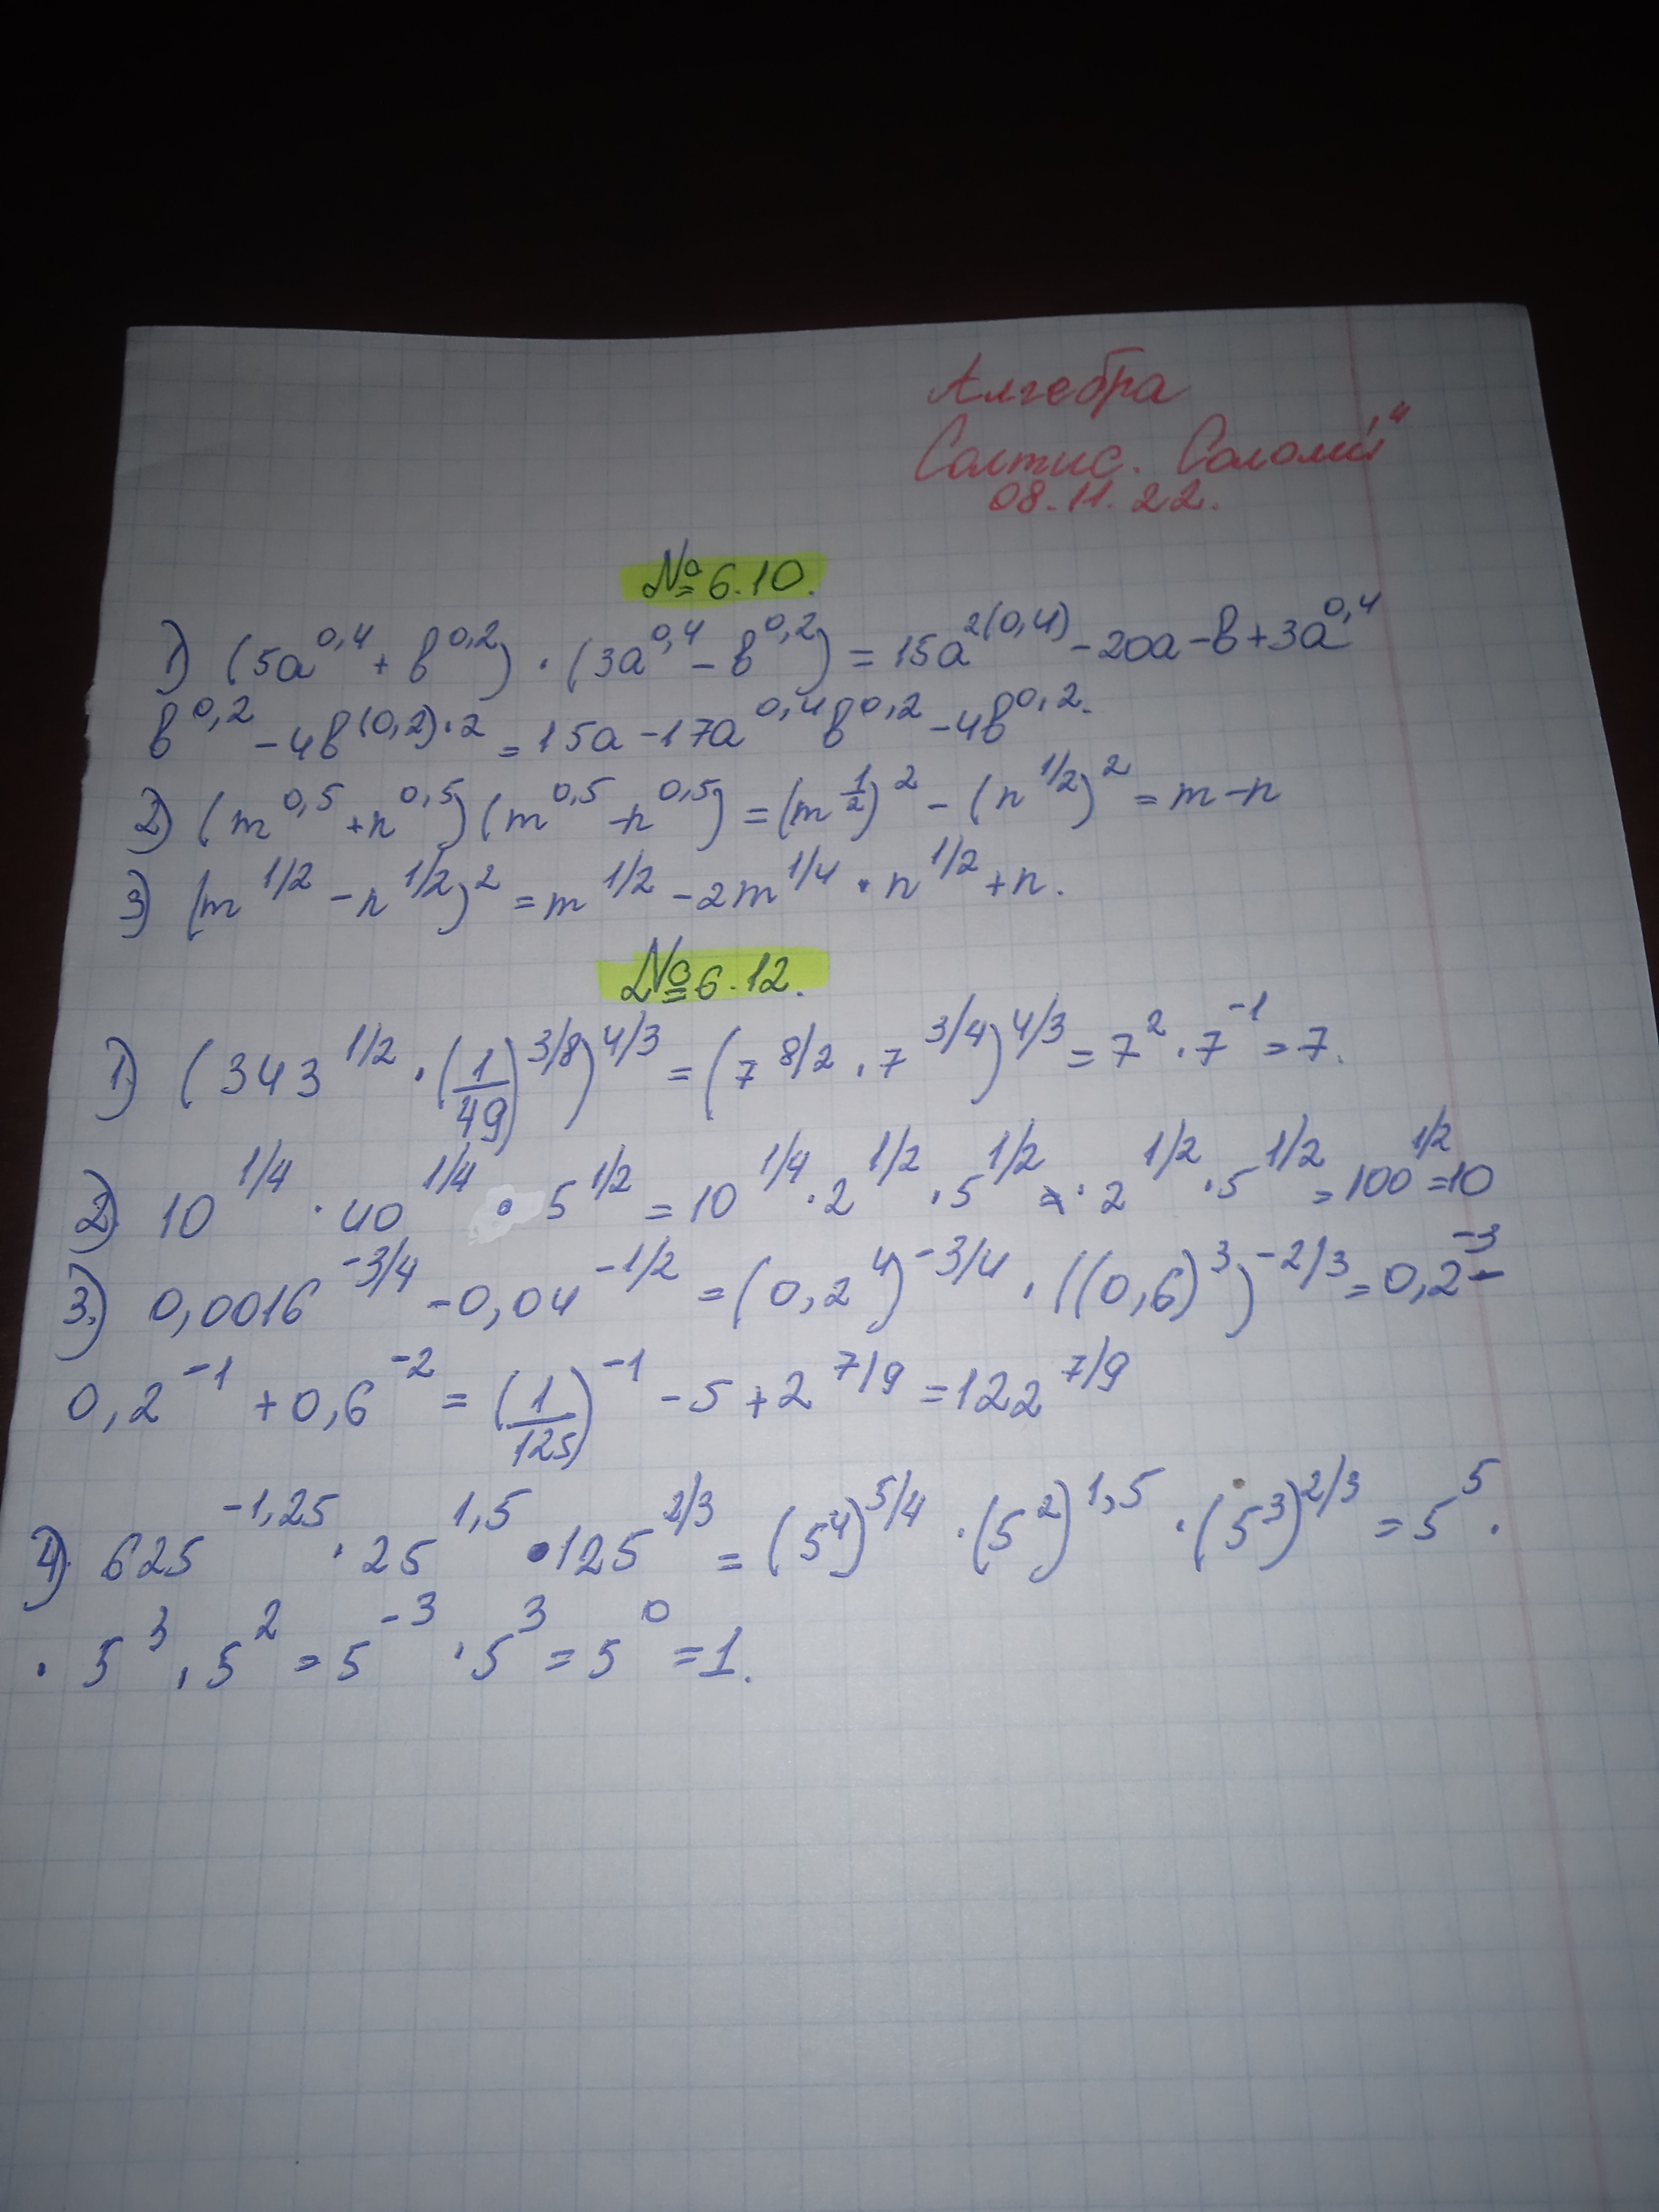 Алгебра
Солтис. Соломії
08.11.22.
№6.10.
1) (5a^0,4 + b^0,2) · (3a^0,4 - b^0,2) = 15a^2(0,4) - 20a - b + 3a^0,4
b^0,2 - 4b^(0,2)·2 = 15a - 17a^0,4 b^0,2 - 4b^0,2.
2) (m^0,5 + n^0,5) (m^0,5 - n^0,5) = (m^1/2)^2 - (n^1/2)^2 = m - n
3) (m^1/2 - n^1/2)^2 = m^1/2 - 2m^1/4 · n^1/2 + n.
№6.12.
1.) (343^1/2 · (1/49)^3/8)^4/3 = (7^8/2 · 7^3/4)^4/3 = 7^2 · 7^-1 = 7.
2). 10^1/4 · 40^1/4 · 5^1/2 = 10^1/4 · 2^1/2 · 5^1/2 · 2^1/2 · 5^1/2 = 100^1/2 = 10
3.) 0,0016^-3/4 - 0,04^-1/2 = (0,2^4)^-3/4 · ((0,6)^3)^-2/3 = 0,2^-3 -
0,2^-1 + 0,6^-2 = (1/125)^-1 - 5 + 2^7/9 = 122^7/9
4). 625^-1,25 · 25^1,5 · 125^2/3 = (5^4)^5/4 · (5^2)^1,5 · (5^3)^2/3 = 5^5 ·
· 5^3 · 5^2 = 5^-3 · 5^3 = 5^0 = 1.